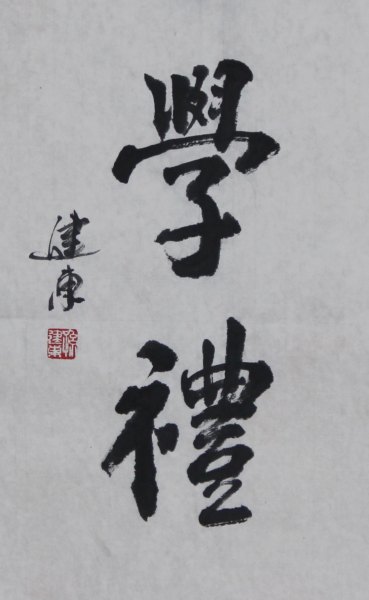 學禮
建東